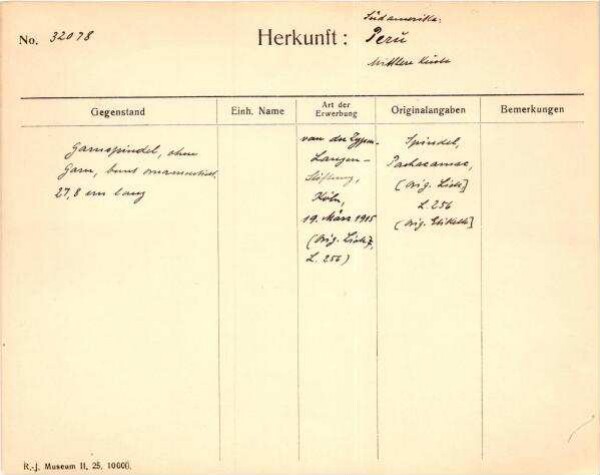 No. 32078
Herkunft:
Südamerika:
Perú
Mittlere Küste
Gegenstand
Einh. Name
Art der Erwerbung
Originalangaben
Bemerkungen
Garnspindel, ohne
Garn, bunt ornamentiert.
27,8 cm lang
van der Zypen-
Langen-
Stiftung,
Köln,
19. März 1915
(Orig. Liste],
L. 256)
Spindel,
Pachacamac,
(Orig. Liste]
L. 256
(Orig. Etikette]
R.-J. Museum II. 25. 10000.